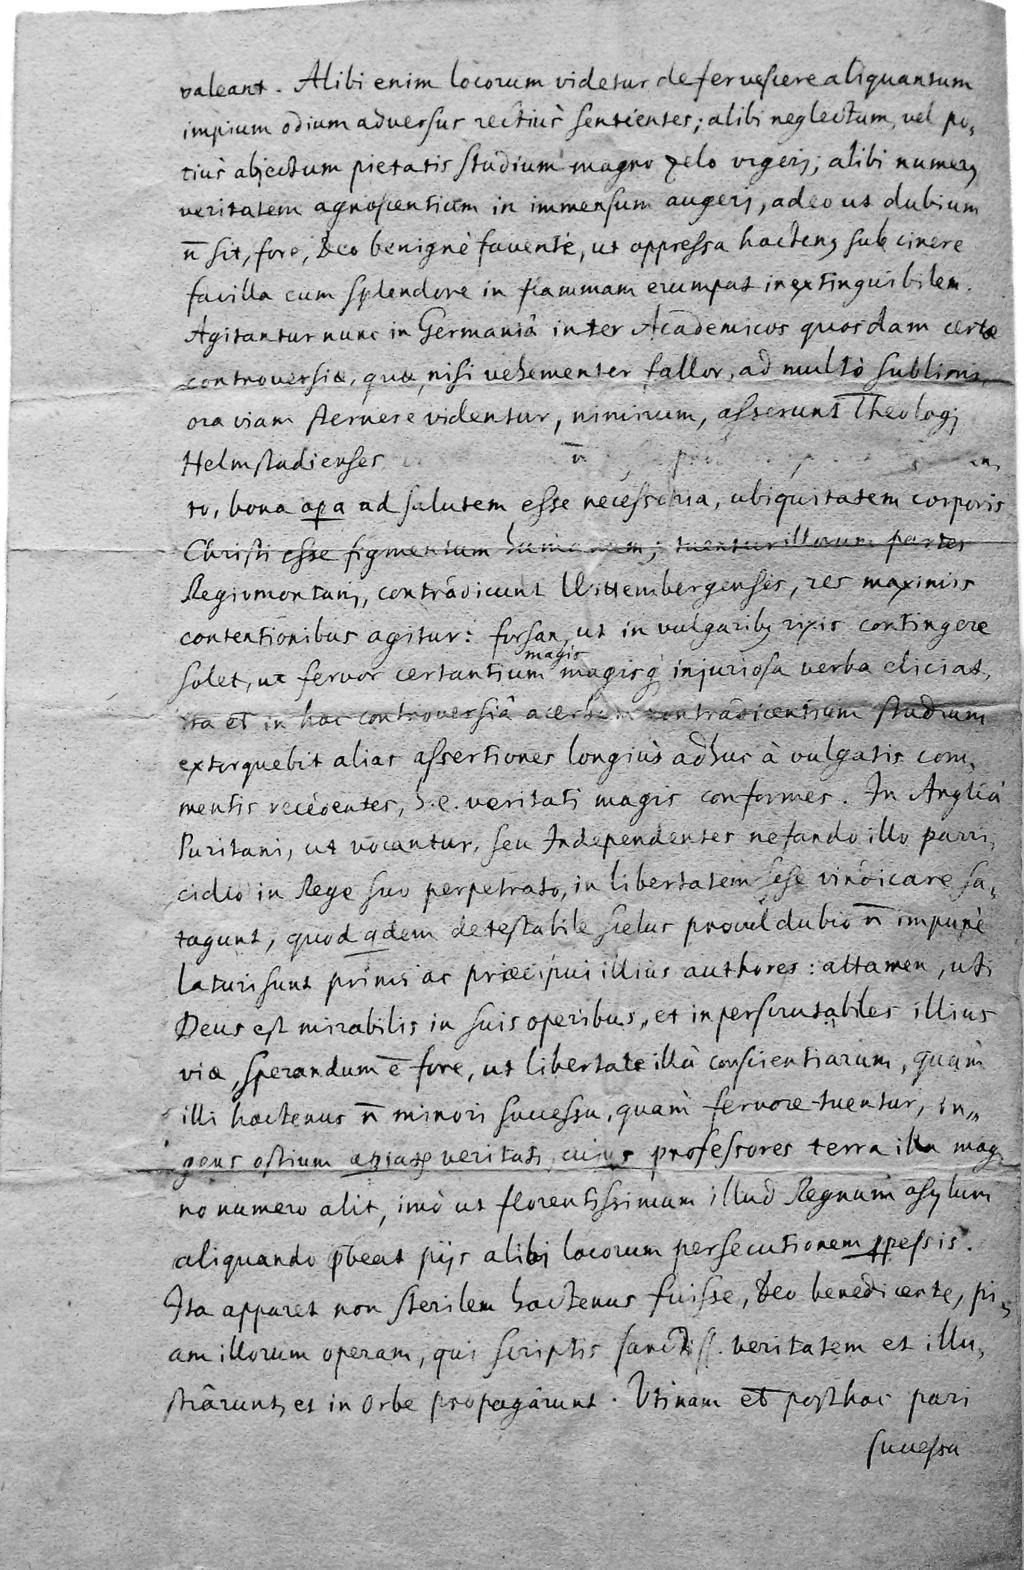 valeant. Alibi enim locorum videtur defervescere aliquantum
impium odium adversus rectius sentientes; alibi neglectum, vel po,
tiùs abjectum pietatis studium magno zelo urgeri; alibi numerꝰ
veritatem agnoscentium in immensum augeri, adeo ut dubium
n̄ sit, fore, Deo benignè favente, ut oppressa hactenꝰ sub cinere
favilla cum splendore in flammam erumpat inextinguibilem.
Agitantur nunc in Germaniâ inter Academicos quosdam certæ
controversiæ, quæ, nisi vehementer fallor, ad multò sublimi,
ora viam sternere videntur, nimirum, asserunt Theologi
Helmstadienses n̄
to, bona opa ad salutem esse necessaria, ubiquitatem corporis
Christi esse figmentum humanum; tuentur illorum partes
Regiomontani, contradicunt Wittembergenses, res maximis
contentionibus agitur: forsan, ut in vulgaribꝰ rixis contingere
solet, ut fervor certantium magis magisq́ injuriosa verba eliciat,
ita et in hac controversiâ acerbum contradicentium studium
extorquebit alias assertiones longiùs adhuc à vulgatis com,
mentis recedentes, h.e. veritati magis conformes. In Angliâ
Puritani, ut vocantur, seu Independentes nefando illo parri,
cidio in Rege suo perpetrato, in libertatem sese vindicare sa,
tagunt, quod qdem detestabile scelus procul dubio n̄ impunè
laturi sunt primi ac præcipui illius authores: attamen, uti
Deus est mirabilis in suis operibus, et inperscrutabiles illius
viæ, sperandum ē fore, ut libertate illâ conscientiarum, quam
illi hactenus n̄ minori successu, quàm fervore tuentur, in,,
gens ostium apiat veritati, cujus professores terra illa mag,
no numero alit, imò ut florentissimum illud Regnum asylum
aliquando p̄beat pijs alibi locorum persecutionem ꝑpessis.
Ita apparet non sterilem hactenus fuisse, Deo benedicente, pi,
am illorum operam, qui scriptis sanctiss. veritatem et illu,
strârunt, et in Orbe propagârunt. Utinam et posthac pari
successu